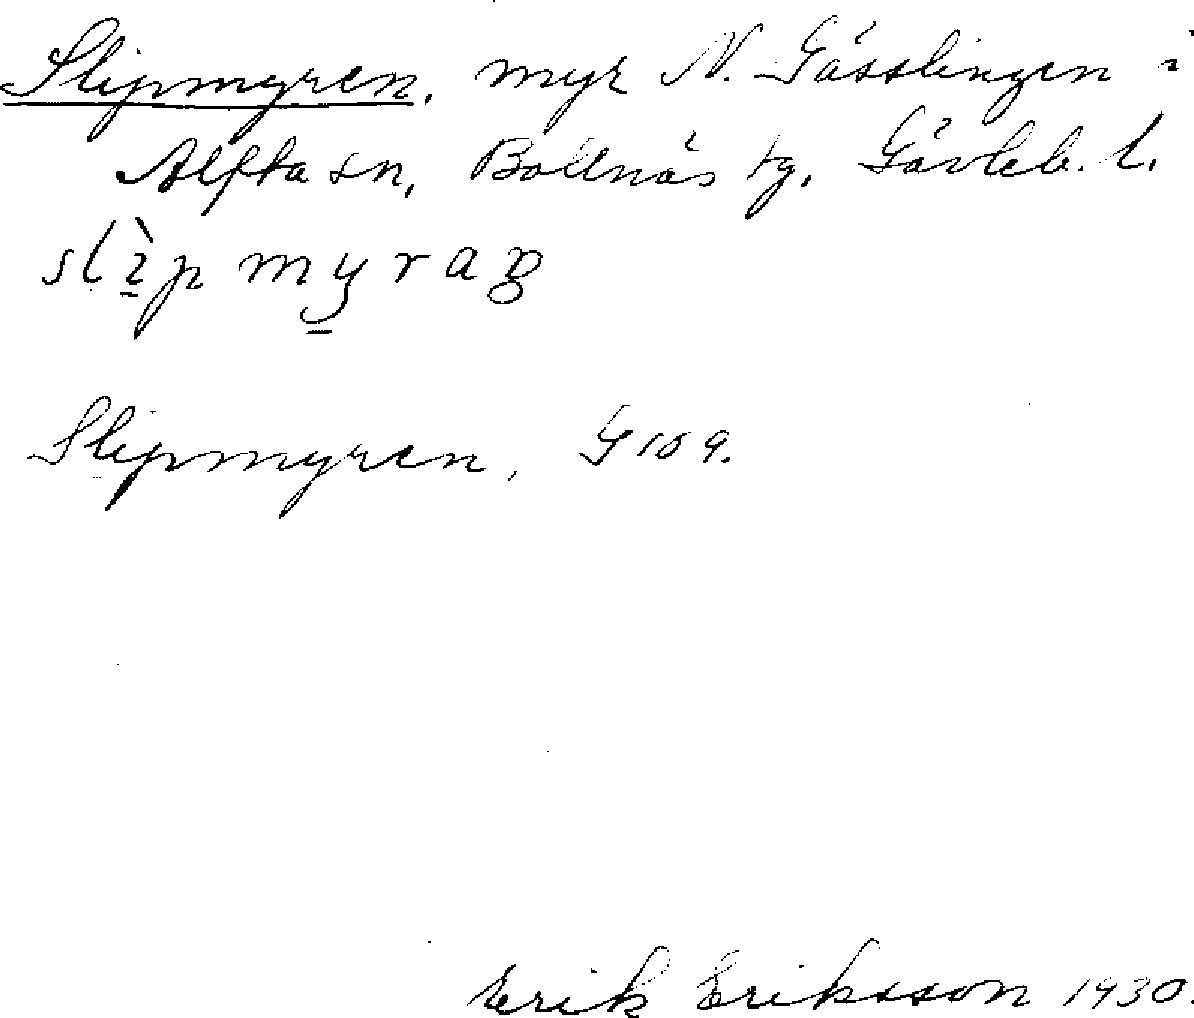 Slipmyren, myr N. Gässlingen i
Alfta sn, Bollnäs tg, Gävleb. l.
Slipmyren, G 109.
Erik Eriksson 1930.